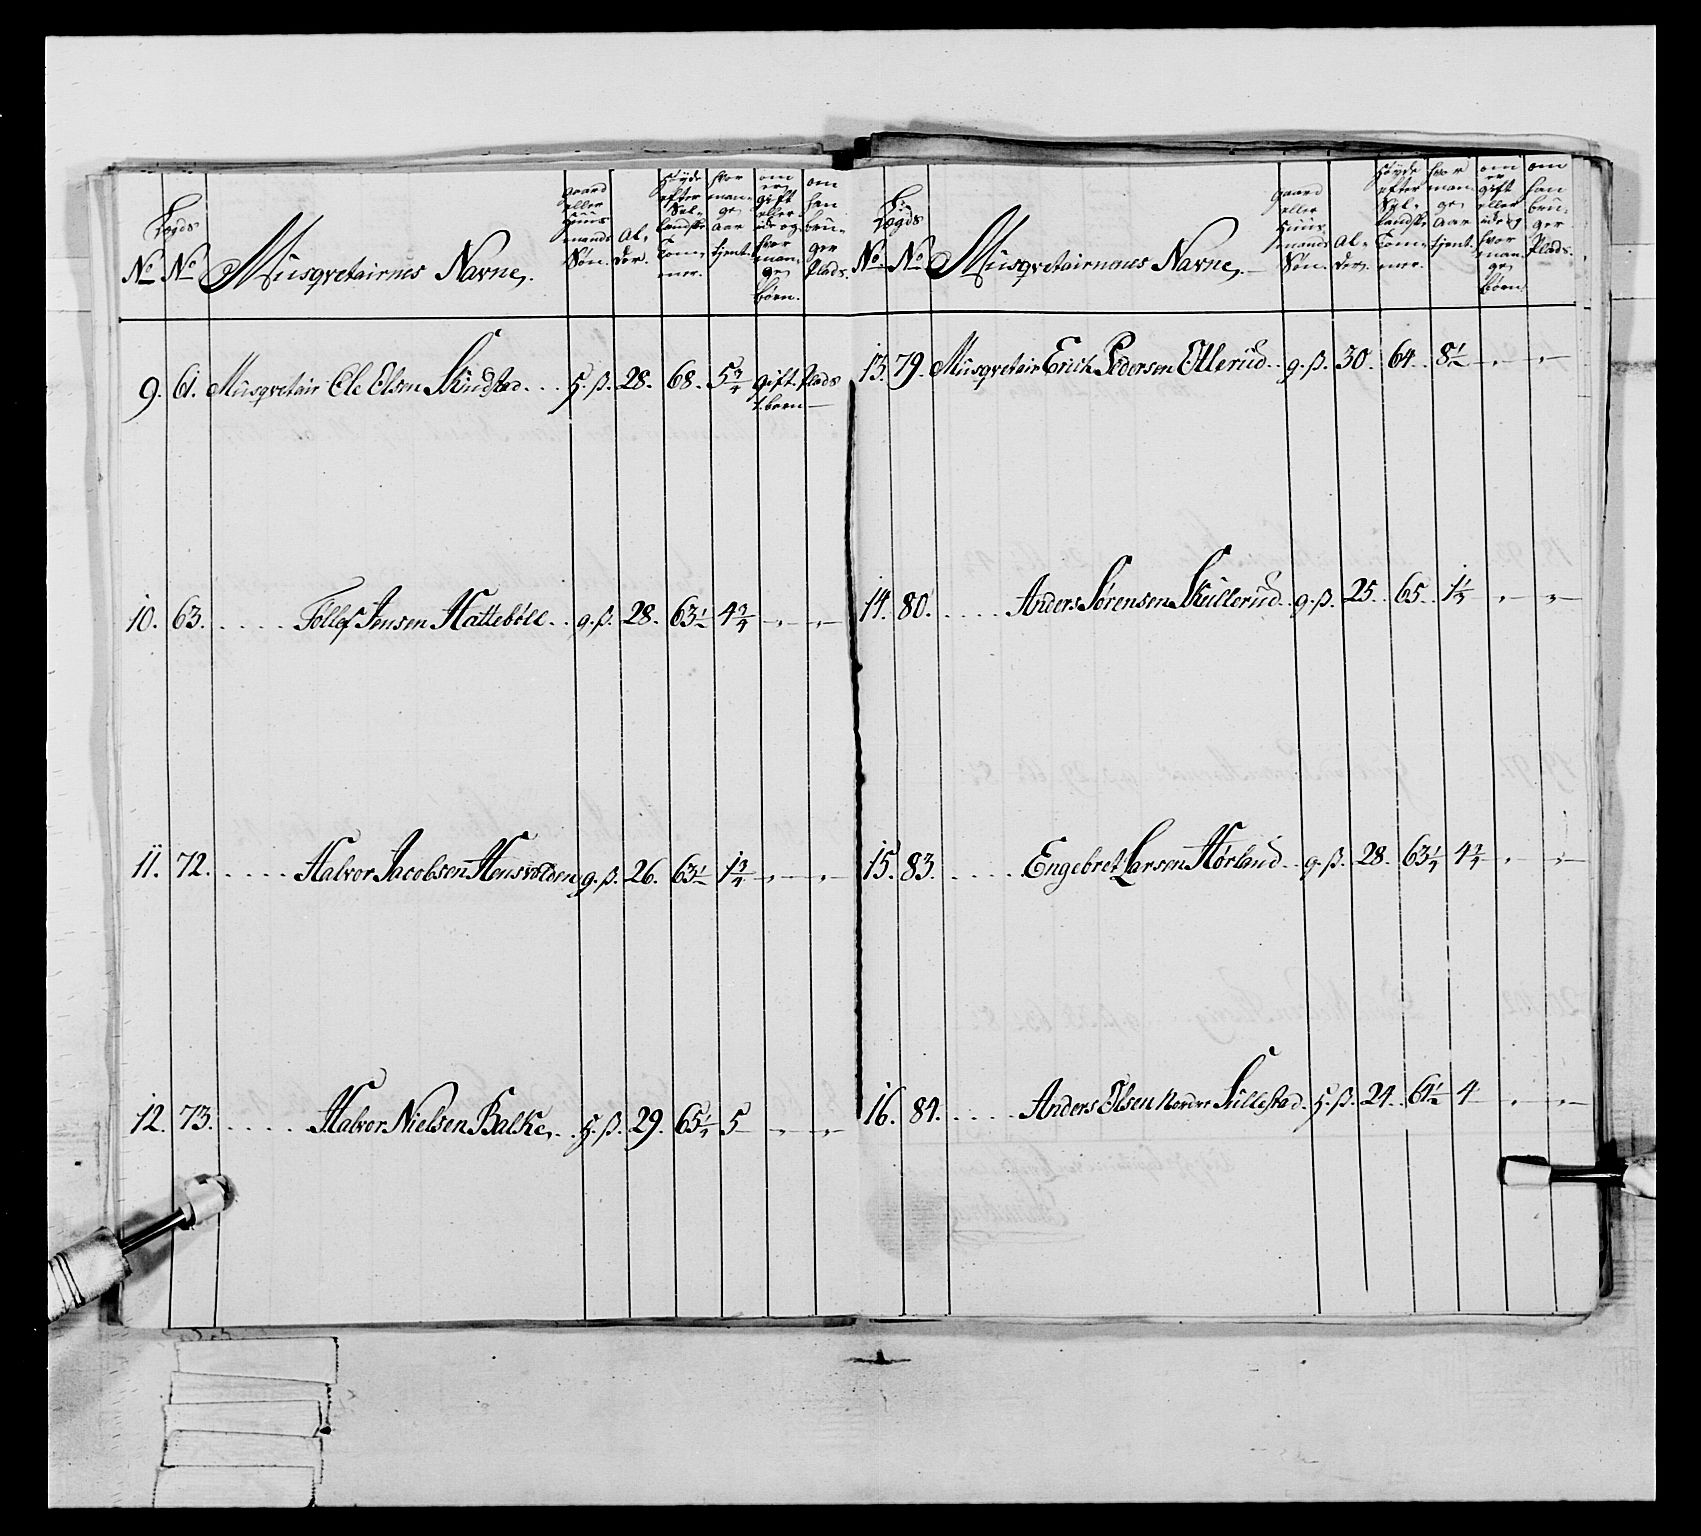 Lægds
No No Musqvetairnes Navne,
gaard eller Huusmands Søn.
Alder.
Høyde efter Sellandske Tommer.
hvor mange Aar tjent.
om er gift eller ide og hvor mange børn.
om han bruger Plads.
9. 61. Musqvetair Ole Olsen Skindstad . . . H.ß. 28. 68. 5 3/4 gift 1. barn Plads
10. 63. . . . . . Tøllef Jensen Hattebøll . . g.ß. 28. 63 1/2 4 3/4 „ „
11. 72. . . . . . Halvor Jacobsen Hensvolden g.ß. 26. 63 1/2 1 3/4 „ „
12. 73. . . . . . Halvor Nielsen Balke, . . H.ß. 29. 65 1/4 5 „ „
Lægds
No No Musqvetairnaus Navne,
gaard eller Huusmands Søn.
Alder.
Høyde efter Sellandske Tommer.
hvor mange Aar tjent.
om er gift eller ide og hvor mange børn.
om han bruger Plads.
13. 79. Musqvetair Erich Pedersen Ellerud . . g.ß. 30. 64. 8 1/2 „ „
14. 80. . . . . Anders Sørensen Skullerud . . g.ß. 25. 65. 1 1/4 „ „
15. 83. . . . . Engebret Larsen Hørland . . g.ß. 28. 63 1/4 4 3/4 „ „
16. 84. . . . . Anders Olsen Nordre Sillestad . H.ß. 24. 64 1/2 4 „ „